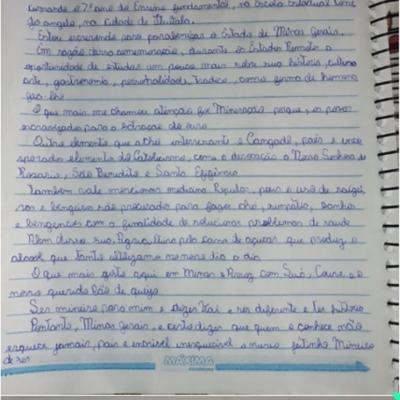 cursando o 7º ano do Ensino fundamental, na Escola Estadual
do angelo, na cidade de
Estou escrevendo para parabenizar o Estado de Minas Gerais.
Em razão dessa comemoração, durante os Estudos Remoto a
oportunidade de estudar um pouco mais sobre sua história, cultura
arte, gastronomia, personalidade, tradice, como forma de homena
gea-lhe
O que mais me chamou atenção foi Mineração porque, os povos
escravizados para a extração de ouro
Outro elemento que achei interessante é Congada, pois é
elementos do Catolicismo, como a devoção a Nossa Senhora do
Rosario, São Benedito e Santa Efigência
Também vale mencionar medicina Popular, para o uso de raizes,
são procurado para fazer chá, simpatia, banhos
e com a finalidade de solucionar problemas de saude
Alem disso sua, cana de açucar que produz o
alcool que tanto utilizamos nesses dia a dia
O que mais gosto aqui em Minas é Arroz com Suã, Couve e o
nosso querido Pão de queijo
Ser mineiro para mim é dizer Uai e ser diferente e ter
Portanto, Minas Gerais, é certo dizer que quem a conhece não
esquece jamais, pois é incrivel inesquecivel o nosso jeitinho Mineiro
de ser
MÁXIMA